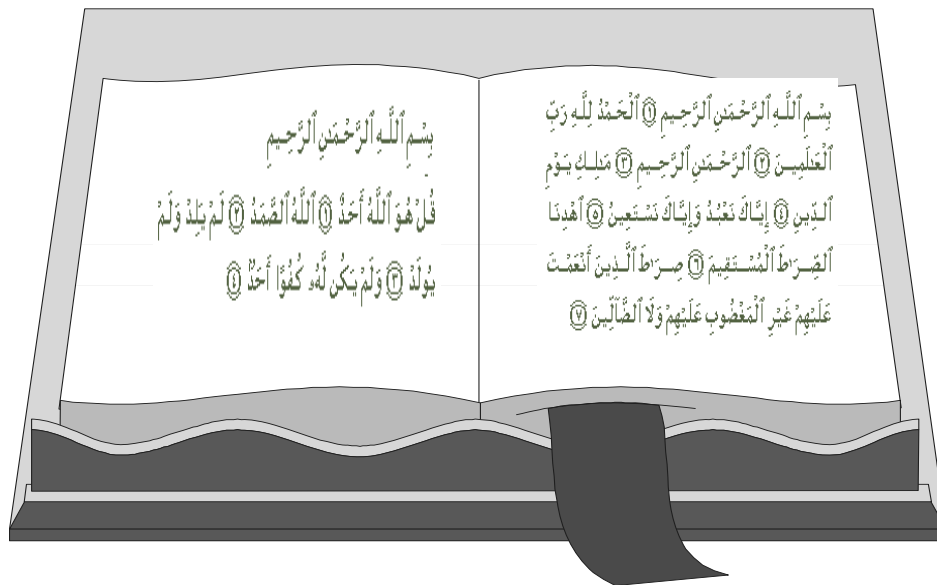 بِسْمِ ٱللَّهِ ٱلرَّحْمَٰنِ ٱلرَّحِيمِ ١ ٱلْحَمْدُ لِلَّهِ رَبِّ
ٱلْعَٰلَمِينَ ٢ ٱلرَّحْمَٰنِ ٱلرَّحِيمِ ٣ مَٰلِكِ يَوْمِ
ٱلدِّينِ ٤ إِيَّاكَ نَعْبُدُ وَإِيَّاكَ نَسْتَعِينُ ٥ ٱهْدِنَا
ٱلصِّرَٰطَ ٱلْمُسْتَقِيمَ ٦ صِرَٰطَ ٱلَّذِينَ أَنْعَمْتَ
عَلَيْهِمْ غَيْرِ ٱلْمَغْضُوبِ عَلَيْهِمْ وَلَا ٱلضَّآلِّينَ ٧
بِسْمِ ٱللَّهِ ٱلرَّحْمَٰنِ ٱلرَّحِيمِ
قُلْ هُوَ ٱللَّهُ أَحَدٌ ١ ٱللَّهُ ٱلصَّمَدُ ٢ لَمْ يَلِدْ وَلَمْ
يُولَدْ ٣ وَلَمْ يَكُن لَّهُۥ كُفُوًا أَحَدٌۢ ٤